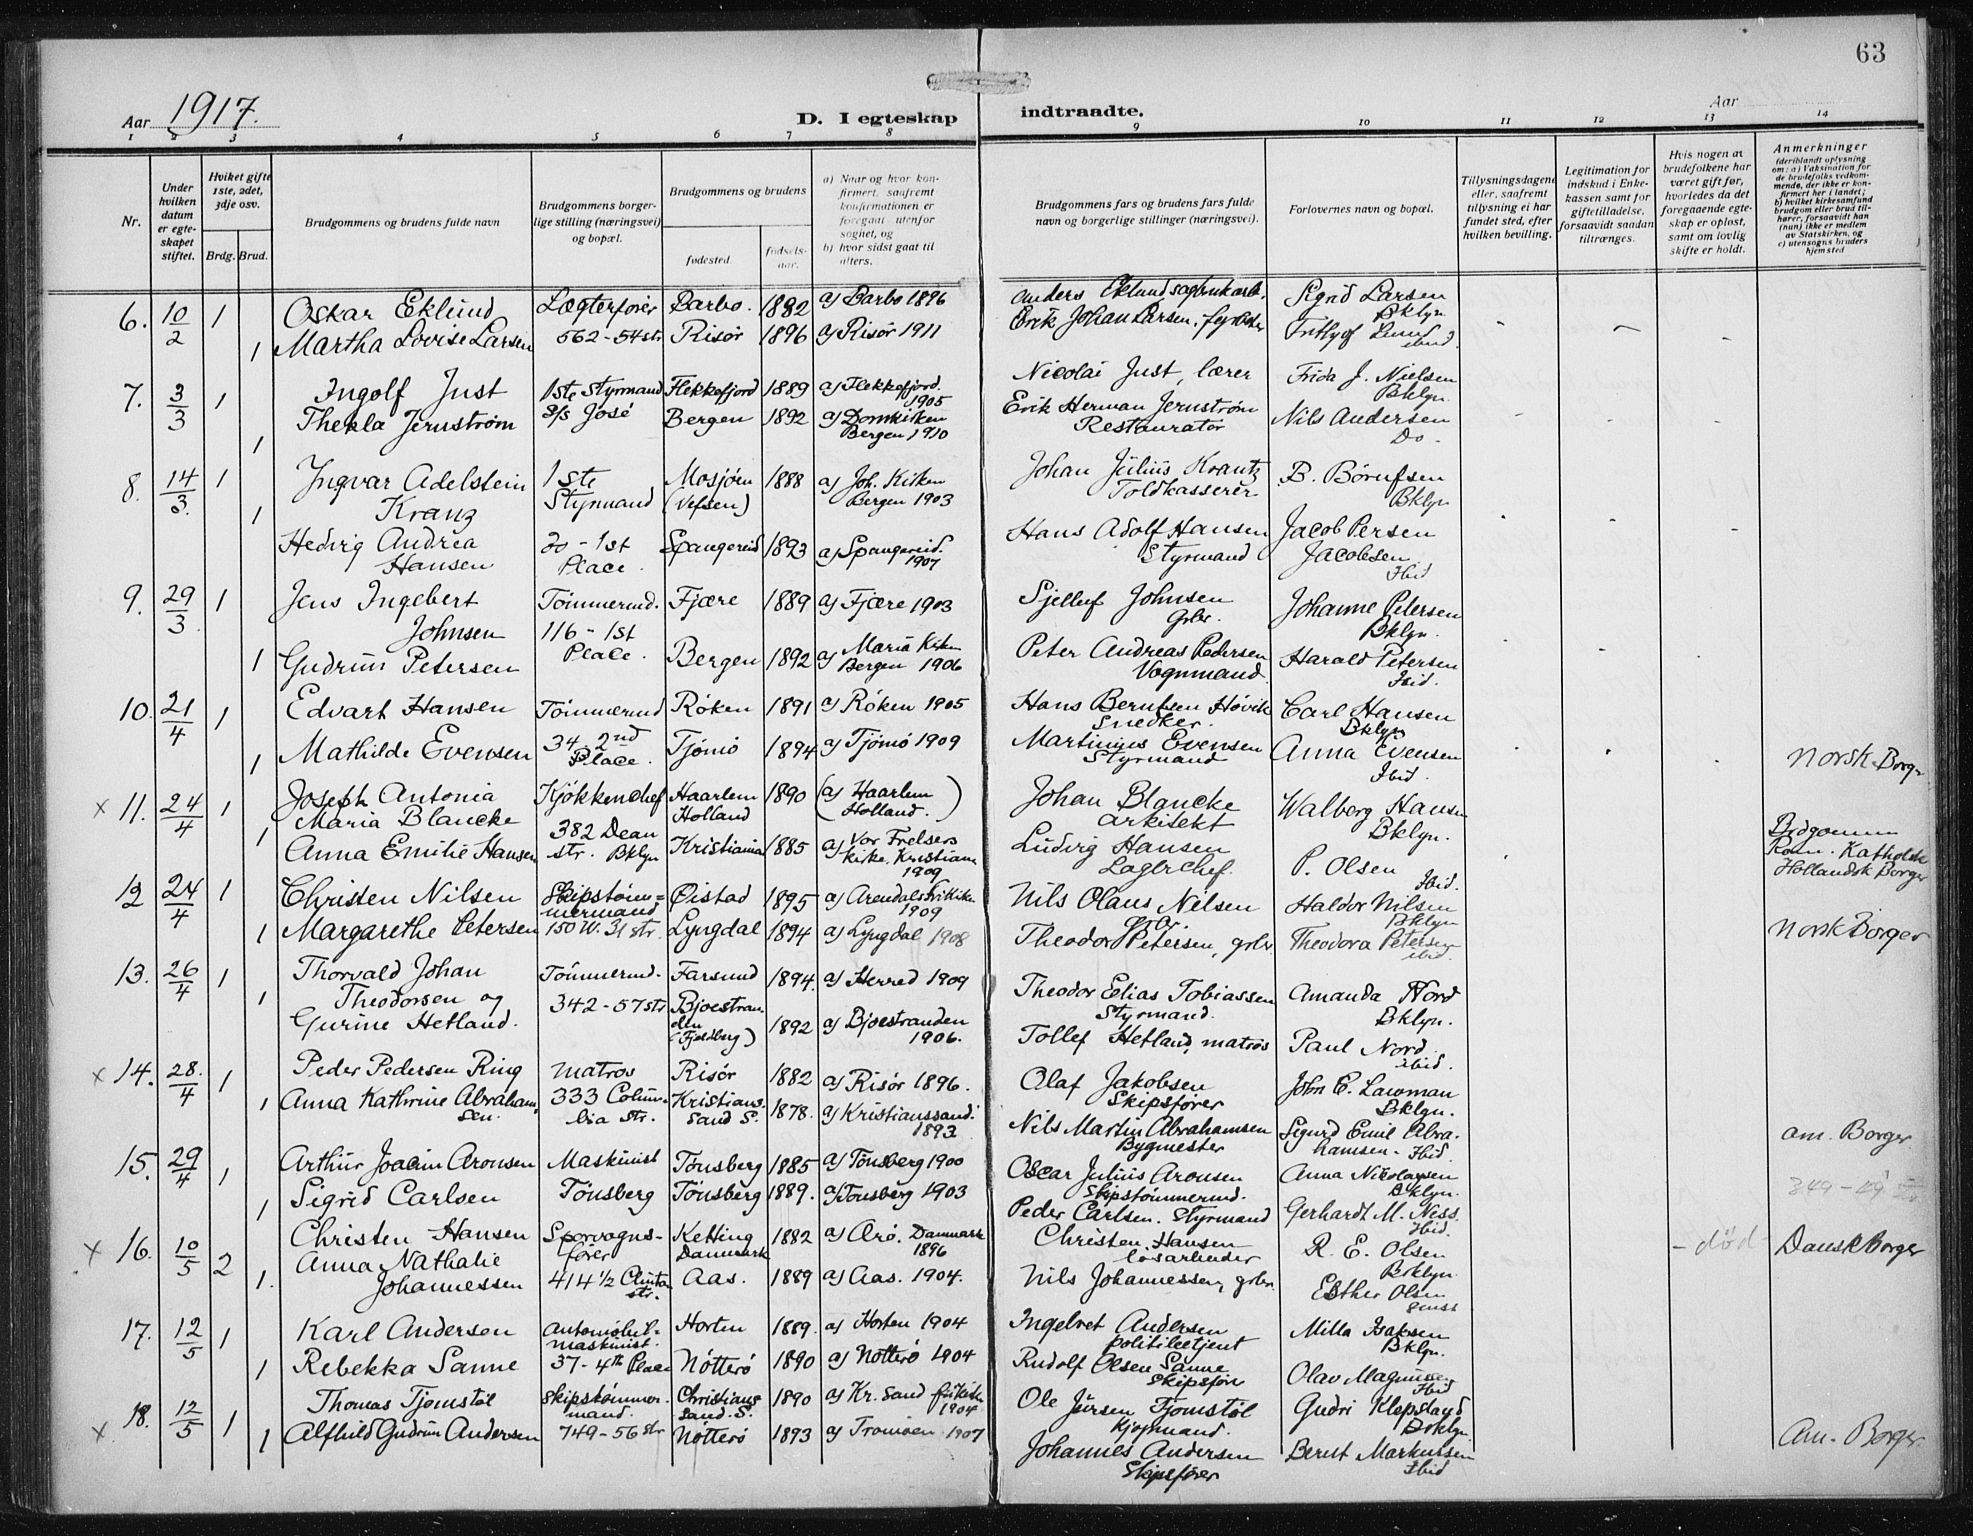 63
Aar 1917.
D. I egteskap indtraadte.
Aar
1 2 3 4 5 6 7 8 9 10 11 12 13 14
Nr.
Under hvilken datum er egteskapet stiftet.
Hvilket gifte 1ste, 2det, 3dje osv.
Brdg. Brud.
Brudgommens og brudens fulde navn
Brudgommens borgerlige stilling (næringsvei) og bopæl.
Brudgommens og brudens
fødested.
fødselsaar.
a) Naar og hvor konfirmert, saafremt konfirmationen er foregaat utenfor sognet, og
b) hvor sidst gaat til alters.
Brudgommens fars og brudens fars fulde navn og borgerlige stillinger (næringsvei).
Forlovernes navn og bopæl.
Tillysningsdagene eller, saafremt tillysning ei har fundet sted, efter hvilken bevilling.
Legitimation for indskud i Enkekassen samt for giftetilladelse, forsaavidt saadan tiltrænges.
Hvis nogen av brudefolkene har været gift før, hvorledes da det foregaaende egteskap er opløst, samt om lovlig skifte er holdt.
Anmerkninger (deriblandt oplysning om: a) Vaksination for de brudefolks vedkommende, der ikke er konfirmert her i landet; b) hvilket kirkesamfund brudgom eller brud tilhører, forsaavidt han (hun) ikke er medlem av Statskirken, og c) utensogns bruders hjemsted
6. 10/2 1 Oskar Eklund Lægterfører Barbo. 1882 a) Barbo 1896 Anders Eklund sagbrukarb. Sigrid Larsen Bklyn
1 Martha Lovise Larsen 562-54 str Risør 1896 a) Risør 1911 Erik Johan Larsen, fyrbøter Frithjof Lund ibid.
7. 3/3 1 Ingolf Just 1ste Styrmand Flekkefjord 1889 a) Flekkefjord. 1905 Nicolai Just, lærer Frida J. Nielsen Bklyn
1 Thekla Jernstrøm S/S José Bergen 1892 a) Domkirken Bergen 1910 Erik Herman Jernstrøm Restauratør Nils Andersen Do.
8. 14/3. 1 Ingvar Adelstein Kranz 1ste Styrmand Mosjøen (Vefsen) 1888 a) Joh. Kirken Bergen 1903 Johan Julius Krantz Toldkasserer B. Børufsen Bklyn
1 Hedvig Andrea Hansen 20-1st Place. Spangereid 1893 a) Spangereid. 1907 Hans Adolf Hansen Styrmand Jacob Persen Jacobsen Ibid
9. 29/3 1 Jens Ingebert Johnsen Tømmermd. 116-1st Place. Fjære 1889 a) Fjære 1903 Sjelluf Johnsen Grbr. Johanne Petersen Bklyn.
1 Gudrun Petersen Bergen 1892 a) Maria Kirken Bergen 1906 Peter Andreas Pedersen Vognmand Harald Petersen Ibid.
10. 21/4 1 Edvart Hansen Tømmermd Røken 1891 a) Røken 1905 Hans Berntsen Høvik Snedker. Carl Hansen Bklyn
1 Mathilde Evensen 34 2nd Place. Tjømø 1894 a) Tjømø 1909 Martinius Evensen Styrmand Anna Evensen Ibid. Norsk Borger
x 11. 24/4 1 Joseph Antonia Maria Blancke Kjøkkenchef Haarlem Holland 1890 (a) Haarlem Holland.) Johan Blancke arkitekt Walberg Hansen Bklyn.
1 Anna Emilie Hansen 382 Dean str. Bklyn Kristiania 1885 a) Vor Frelsers kirke, Kristiania 1909 Ludvig Hansen Lagerchef. P. Olsen Ibid. Brdgommen Rom. Katholsk Hollandsk Borger
12 24/4 1 Christen Nilsen Skipstømmermand Øistad 1895 a) Arendals frikirke 1909 Nils Olaus Nilsen Grbr. Haldor Nilsen Bklyn
1 Margarethe Petersen 150 W. 31 str. Lyngdal 1894 a) Lyngdal 1908 Theodor Petersen, grbr Theodora Petersen ibid. Norsk Borger
13. 26/4 1 Thorvald Johan Theodorsen og Tømmermd. Farsund 1894. a) Herred 1909 Theodor Elias Tobiassen Styrmand. Amanda Nord Bklyn.
1 Gurine Hetland. 342-57 str Bjoestranden (Fjeldberg) 1892 a) Bjoestranden 1906. Tollef Hetland, matros Paul Nord ibid.
x 14. 28./4 1 Peder Pedersen Ring Matros Risör 1882 a) Risör 1896. Olaf Jakobsen Skipsfører John E. Lawman Bklyn.
1 Anna Kathrine Abrahamsen. 333 Columbia Str. Kristianssand S. 1878. a) Kristianssand. 1893 Nils Martin Abrahamsen Bygmester Sigurd Emil Abrahamsen - Ibid. am. Borger
15. 29/4 1 Arthur Joacim Aronsen Maskinist Tønsberg 1885 a) Tønsberg 1900 Oscar Julius Aronsen Skipstømmermd. Anna Nicolaysen Bklyn.
1 Sigrid Carlsen Tønsberg Tønsberg 1889. a) Tønsberg 1903 Peder Carlsen. Styrmand Gerhardt M. Ness. Ibid. 349-49
x 16. 10/5 2 Christen Hansen Sporvognsfører Ketting Danmark 1882 a) Arö. Danmark 1896 Christen Hansen løsarbeider R. E. Olsen Bklyn. - død Dansk Borger
1. Anna Nathalie Johannessen 414 1/2 Clinton str. Aas. 1889 a) Aas. 1904. Nils Johannessen, grbr. Esther Olsen
17. 12/5 1 Karl Andersen Automobilmaskinist. Horten 1889. a) Horten 1904 Ingebret Andersen politibetjent Milla Isaksen Bklyn.
1 Rebekka Sanne 37-4th Place Nötterö 1890 a) Nötterö 1904 Rudolf Olsen Sanne Skipsfører Olav Magnussen Ibid
x 18. 12/5 1 Thomas Tjomstöl Skipstømmermand. Christianssand. S. 1890 a) Kr. Sand frikirke 1904 Ole Jürsen Tjomstöl Kjøpmand. Gudri Klepsland Bklyn
1 Alfhild Gudrun Andersen 749-56 str Nötterö 1893 a) Tromøen 1907 Johannes Andersen Skipsfører Bernt Markussen Ibid Am. Borger